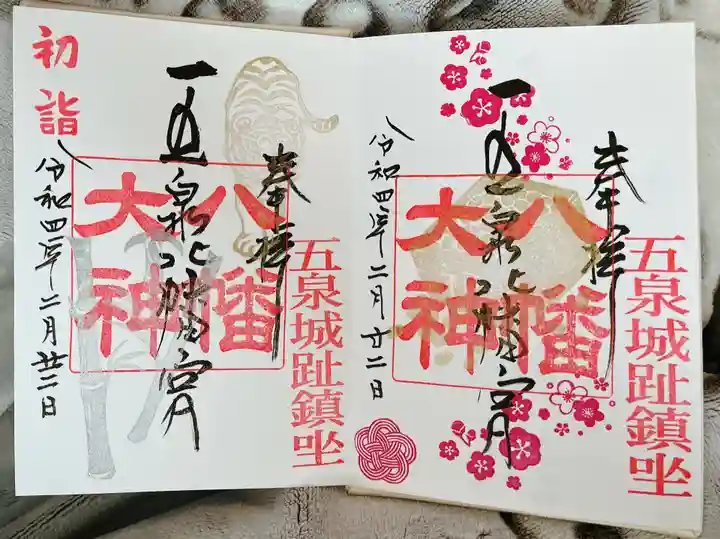 初詣
奉拝
八幡
大神
五泉八幡宮
令和四年二月廿二日
五泉城趾鎮坐
奉拝
八幡
大神
五泉八幡宮
令和四年二月廿二日
五泉城趾鎮坐